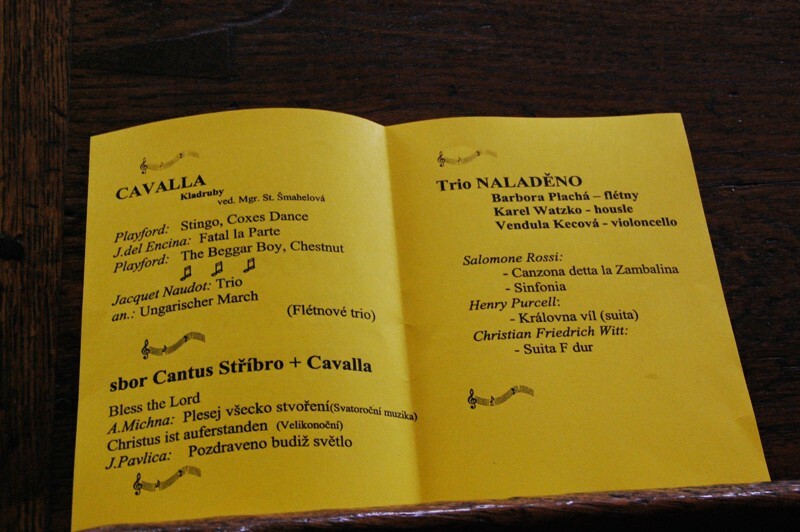 CAVALLA
Kladruby
ved. Mgr. St. Šmahelová
Playford: Stingo, Coxes Dance
J.del Encina: Fatal la Parte
Playford: The Beggar Boy, Chestnut
Jacquet Naudot: Trio
an.: Ungarischer March
(Flétnové trio)
sbor Cantus Stříbro + Cavalla
Bless the Lord
A.Michna: Plesej všecko stvoření(Svatoroční muzika)
Christus ist auferstanden (Velikonoční)
J.Pavlica: Pozdraveno budiž světlo
Trio NALADĚNO
Barbora Plachá – flétny
Karel Watzko - housle
Vendula Kecová - violoncello
Salomone Rossi:
- Canzona detta la Zambalina
- Sinfonia
Henry Purcell:
- Královna víl (suita)
Christian Friedrich Witt:
- Suita F dur